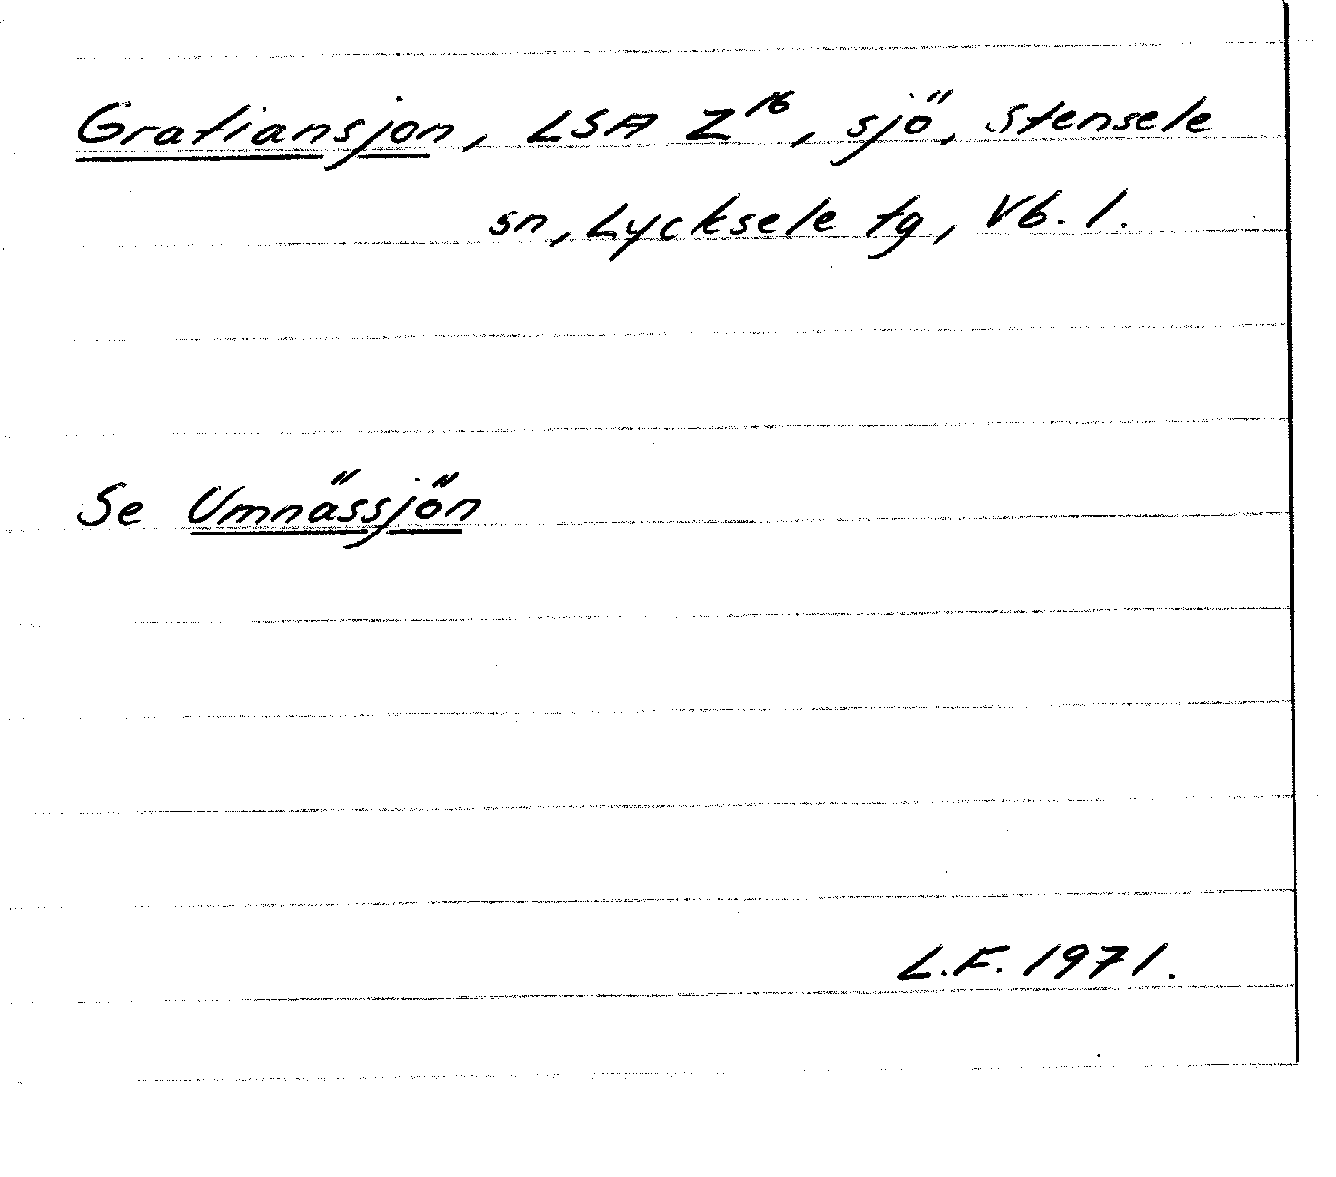 Gratiansjon, LSA Z¹⁶, sjö, Stensele
sn, Lycksele tg, Vb. l.
Se Umnässjön
L.F. 1971.